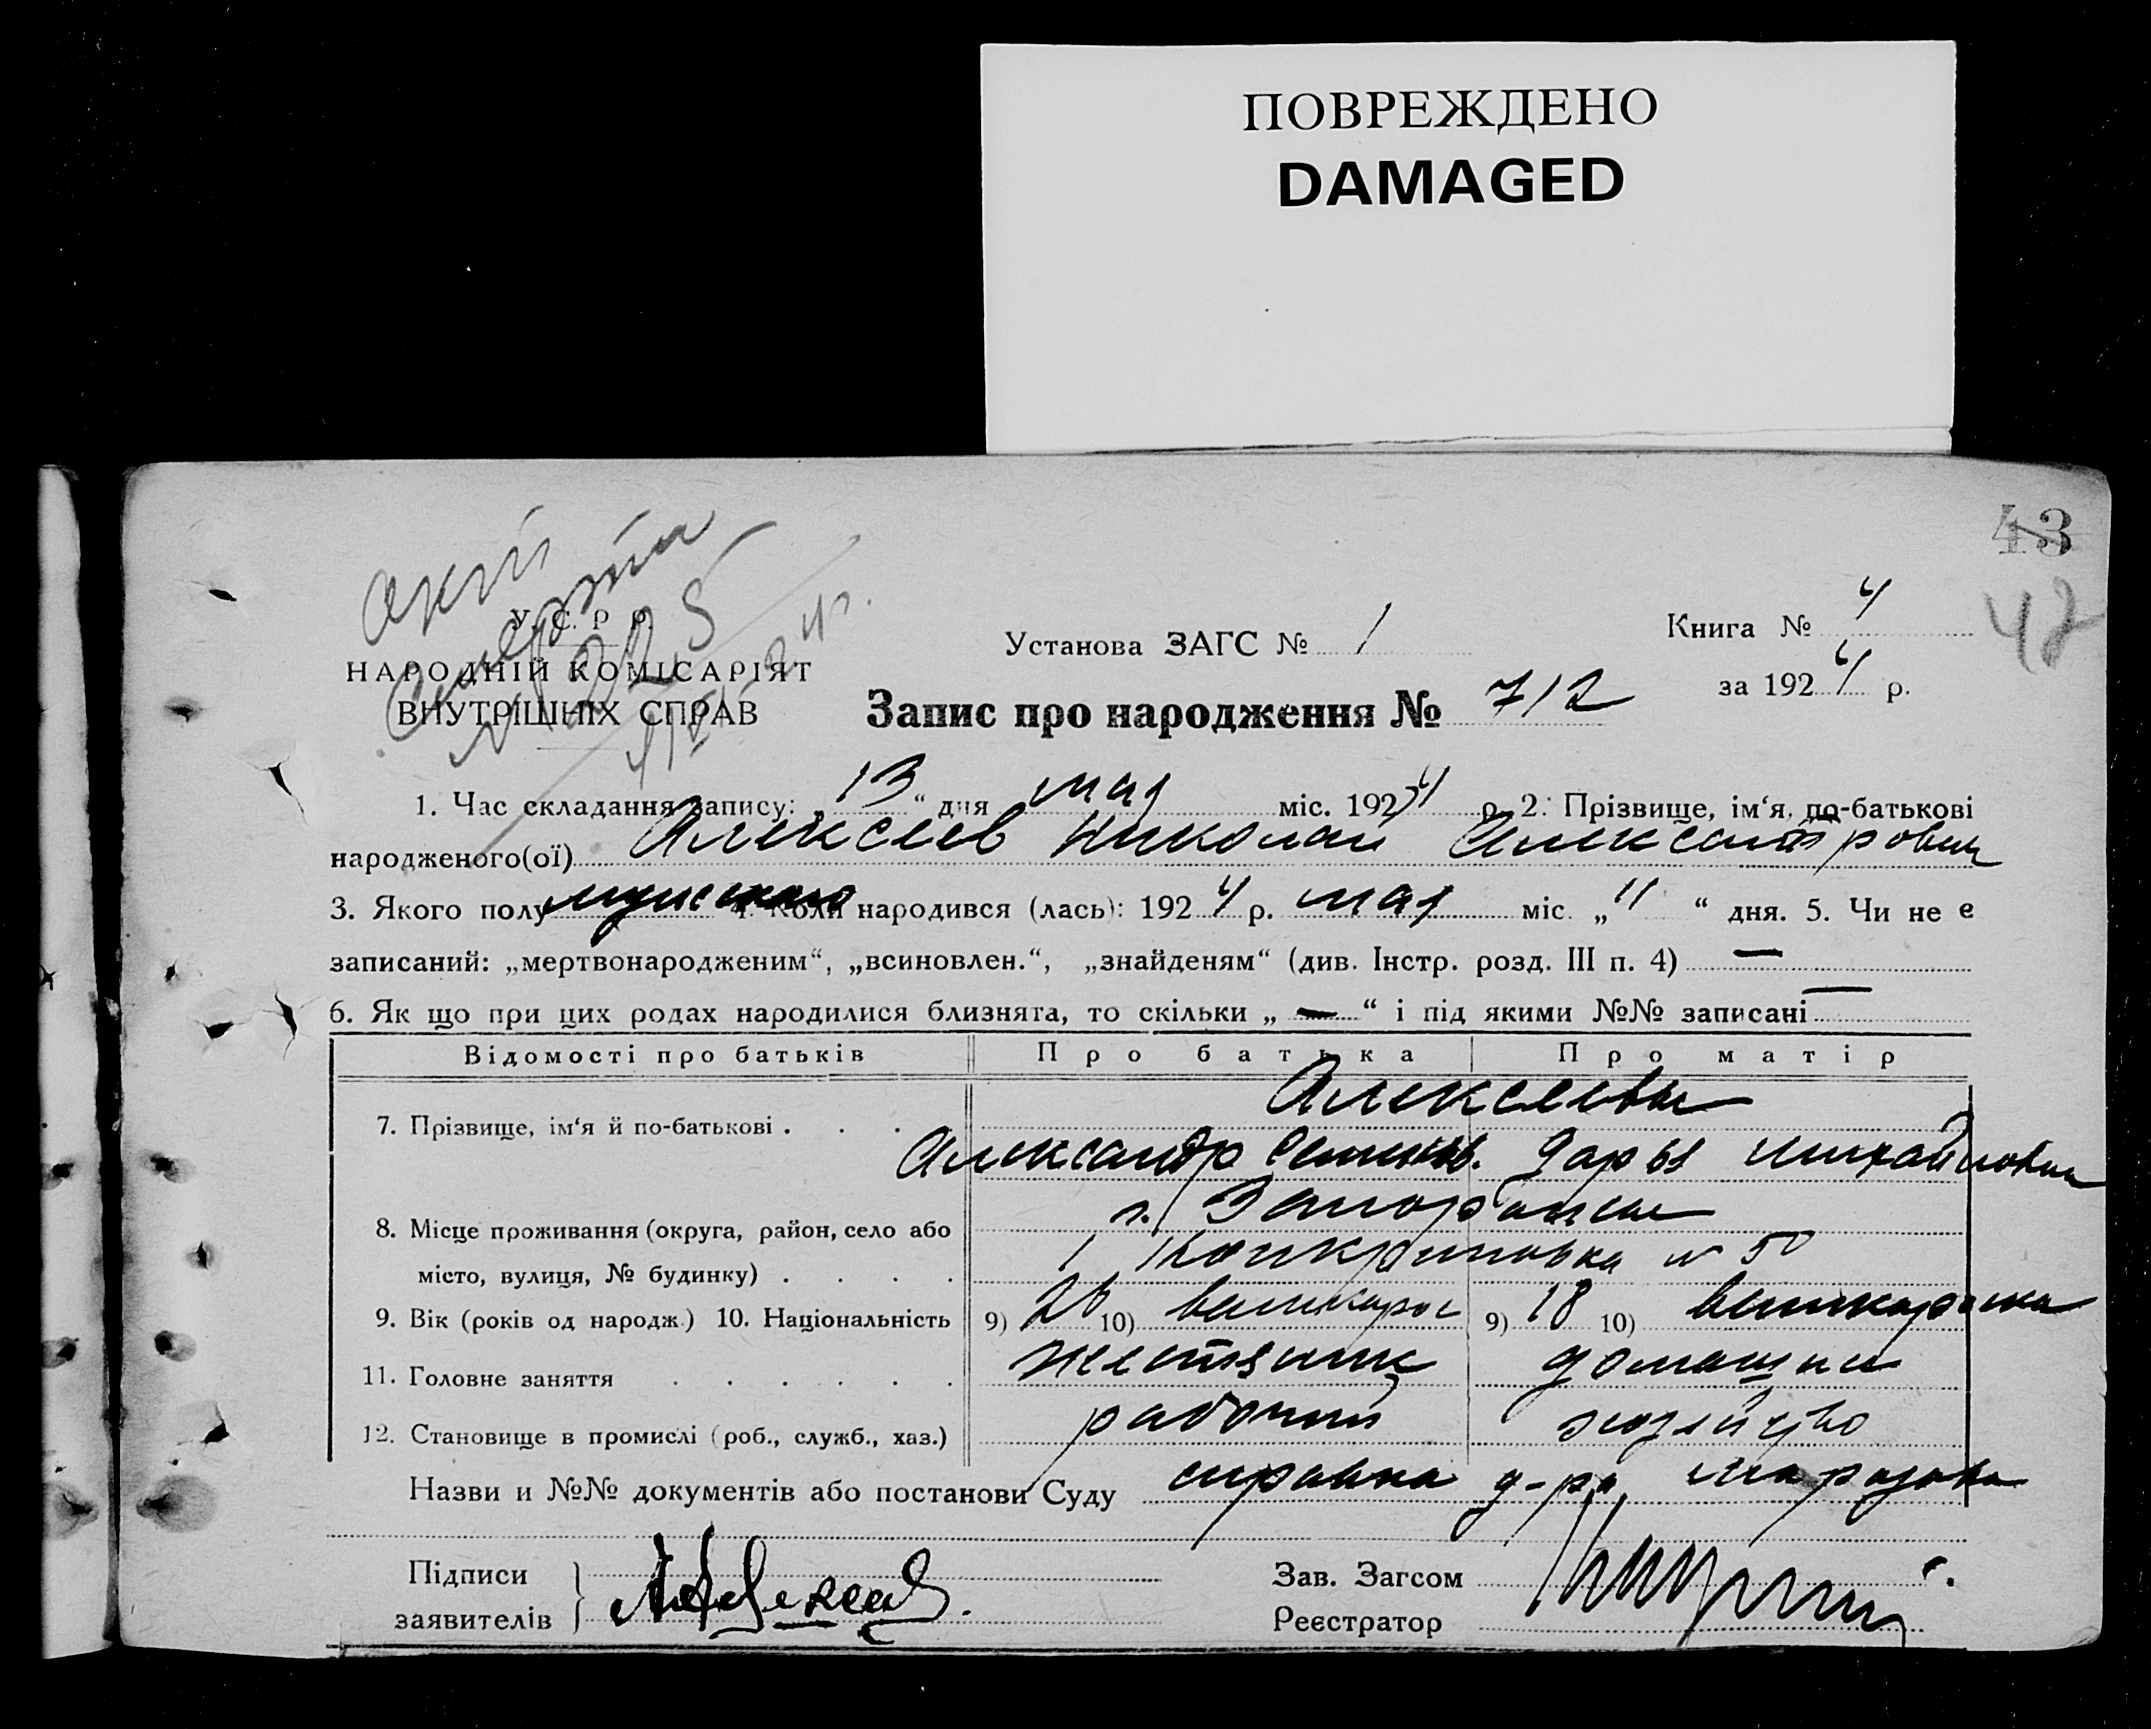 ПОВРЕЖДЕНО
DAMAGED
43
42
акт
смерти
У. С. Р. Р.
НАРОДНІЙ КОМІСАРІЯТ
ВНУТРІШНІХ СПРАВ
24 г.
Установа ЗАГС № 1
Книга № 4
за 1924 р.
Запис про народження № 712
1. Час складання запису: „ 13 “ дня мая міс. 1924 р. 2. Прізвище, ім‘я, по-батькові
народженого(ої) Алексеев Николай Александрович
3. Якого полу мужского 4. Коли народився (лась): 1924 р. мая міс. „ 11 “ дня. 5. Чи не є
записаний: „мертвонародженим“, „всиновлен.“, „знайденям“ (див. Інстр. розд. III п. 4) —
6. Як що при цих родах народилися близнята, то скільки „ — “ і під якими №№ записані —
Відомості про батьків Про батька Про матір
Алексеевы
7. Прізвище, ім‘я й по-батькові . . .
Александр Дарья Михайловна
8. Місце проживання (округа, район, село або г. Запорожье
місто, вулиця, № будинку) . . . . 1 № 50
9. Вік (років од народж.) 10. Національність 9) 26 10) великорос 9) 18 10) великороска
11. Головне заняття . . . . . . жестяник домашнее
12. Становище в промислі (роб., служб., хаз.) рабочий хозяйство
Назви и №№ документів або постанови Суду справка д-ра Морозова
Підписи
заявителів Алексеев.
Зав. Загсом
Реєстратор